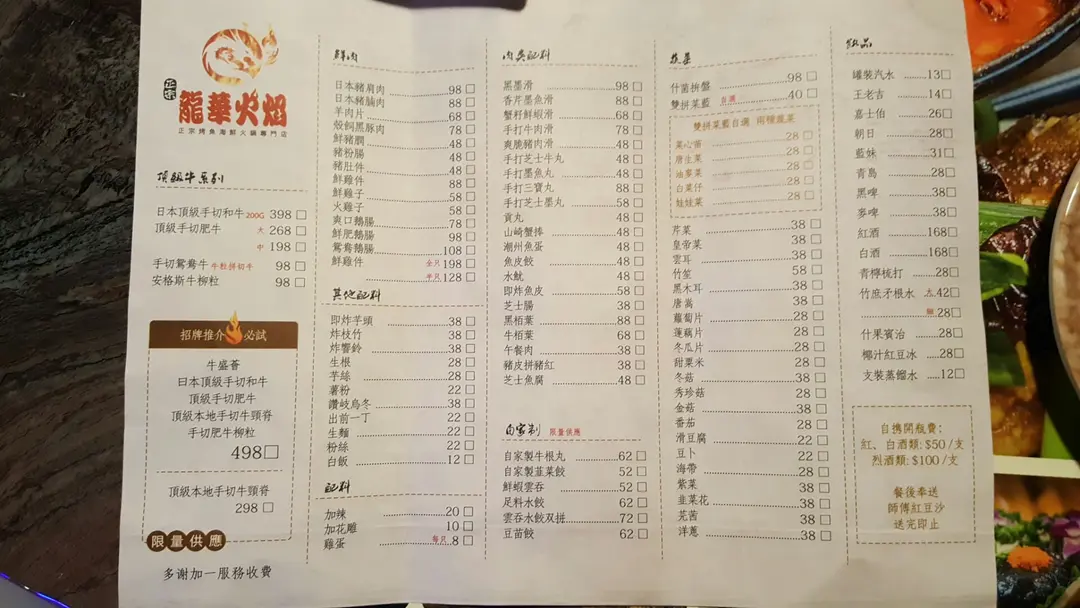 正宗
龍華火焰
正宗烤魚海鮮火鍋專門店
頂級牛系列
日本頂級手切和牛 200G 398
頂級手切肥牛 大 268
中 198
手切鴛鴦牛 牛粒拼切牛 98
安格斯牛柳粒 98
招牌推介 必試
牛盛薈
日本頂級手切和牛
頂級手切肥牛
頂級本地手切牛頸脊
手切肥牛柳粒
498
頂級本地手切牛頸脊
298
限量供應
多谢加一服務收費
鮮肉
日本豬肩肉 98
日本豬腩肉 88
羊肉片 68
穀飼黑豚肉 78
鮮豬膶 48
豬粉腸 48
豬肚件 48
鮮雞件 88
鮮雞子 58
火雞子 58
爽口鵝腸 78
鮮肥鵝腸 98
鴛鴦鵝腸 108
鮮雞件 全只 198
半只 128
其他配料
即炸芋頭 38
炸枝竹 38
炸響鈴 38
生根 28
芋絲 28
薯粉 22
讚岐烏冬 38
出前一丁 22
生麵 22
粉絲 22
白飯 12
配料
加辣 20
加花雕 10
雞蛋 每只 8
肉类配料
黑墨滑 98
香芹墨魚滑 88
蟹籽鮮蝦滑 68
手打牛肉滑 78
爽脆豬肉滑 68
手打芝士牛丸 48
手打墨魚丸 48
手打三寶丸 58
手打芝士墨丸 58
貢丸 48
山崎蟹棒 48
潮州魚蛋 48
魚皮餃 48
水魷 48
即炸魚皮 58
芝士腸 38
黑栢葉 88
牛栢葉 68
午餐肉 38
豬皮拼豬紅 38
芝士魚腐 48
自家制 限量供應
自家製牛根丸 62
自家製韮菜餃 52
鮮蝦雲吞 52
足料水餃 62
雲吞水餃双拼 72
豆苗餃 62
蔬菜
什菌拚盤 98
雙拼菜藍 自選 40
雙拼菜藍自選 兩種蔬菜
菜心苗 28
唐生菜 28
油麥菜 28
白菜仔 28
娃娃菜 28
芹菜 38
皇帝菜 38
雲耳 38
竹笙 58
黑木耳 38
唐蒿 38
蘿蔔片 28
蓮藕片 28
冬瓜片 28
甜粟米 28
冬菇 38
秀珍菇 28
金菇 38
番茄 28
滑豆腐 22
豆卜 22
海帶 28
紫菜 38
韭菜花 38
芫茜 38
洋蔥 38
飲品
罐裝汽水 13
王老吉 14
嘉士伯 26
朝日 28
藍妹 31
青島 28
黑啤 38
麥啤 38
紅酒 168
白酒 168
青檸梳打 28
竹庶矛根水 大 42
細 28
什果賓治 28
椰汁紅豆冰 28
支裝蒸餾水 12
自携開瓶費:
紅、白酒類: $50 /支
烈酒類: $100 /支
餐後奉送
師傅紅豆沙
送完即止